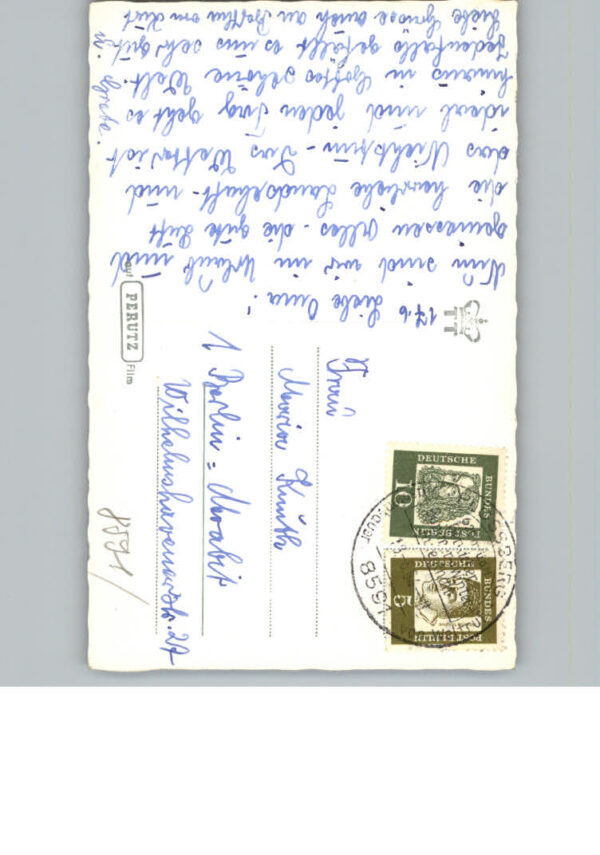 17.6
Liebe Oma!
Nun sind wir im Urlaub und
genießen Alles - die gute Luft
die herrliche Landschaft - und
das Nichtstun - Das Wetter ist
ideal und jeden Tag geht es
hinaus in Gottes schöne Welt.
Jedenfalls gefällt es uns sehr gut
Liebe Grüsse auch an
Grete.
auf PERUTZ Film
Frau
Maria Knuth
1 Berlin = Moabit
Wilhelmshavenerstr. 27
8591/
DEUTSCHE BUNDES POST BERLIN
10
DEUTSCHE BUNDES POST BERLIN
5
8591